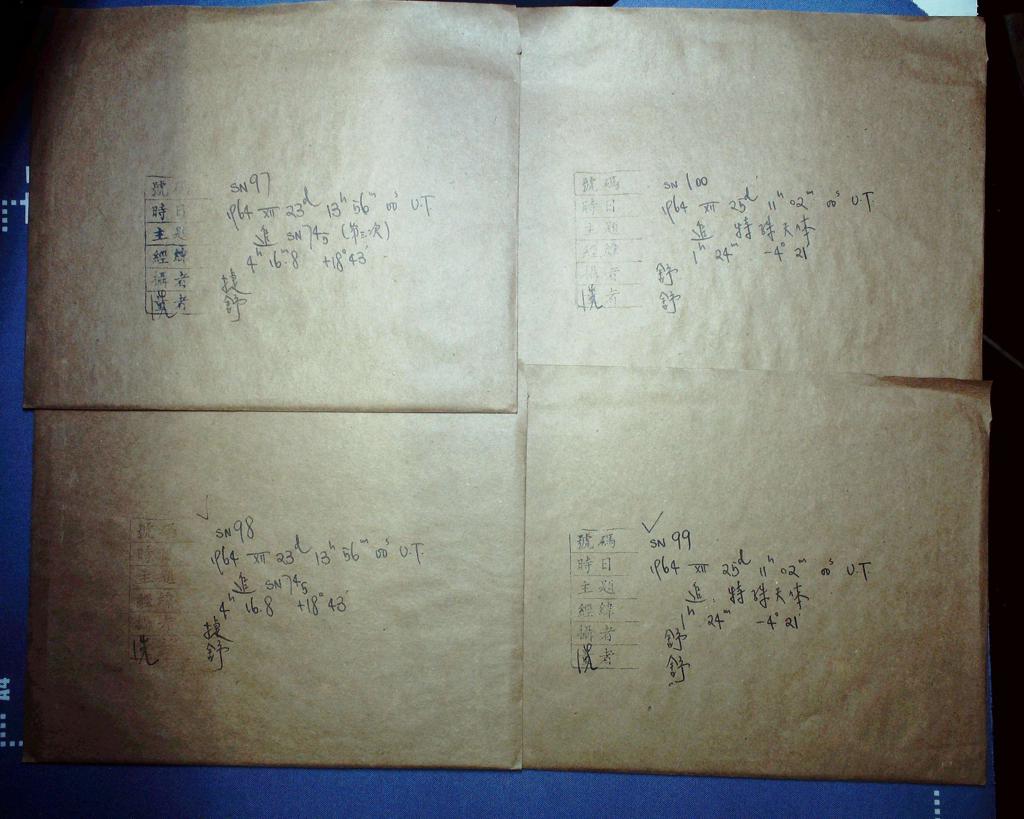 號碼 SN 97
時日 1964 XII 23d 13h 56m 00s U.T
主題 追 SN 745 (第三次)
經緯 4h 16m.8 +18°43'
攝者 捷
洗者 舒
號碼 SN 100
時日 1964 XII 25d 11h 02m 00s U.T
主題 追 特殊天体
經緯 1h 24m -4°21'
攝者 舒
洗者 舒
號碼 SN 98
時日 1964 XII 23d 13h 56m 00s U.T.
主題 追 SN 745
經緯 4h 16.8 +18°43'
攝者 捷
洗 舒
號碼 SN 99
時日 1964 XII 25d 11h 02m 00s U.T
主題 追 特殊天体
經緯 1h 24m -4°21'
攝者 舒
洗者 舒
A4